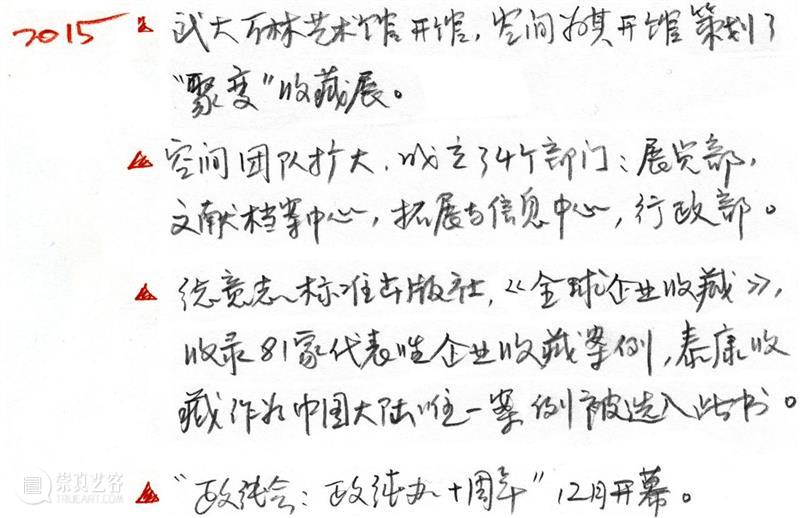 2015 武大万林艺术馆开馆,空间为其开馆策划了
“聚变”收藏展。
空间团队扩大,成立了4个部门:展览部,
文献档案中心,拓展与信息中心,行政部。
德意志标准出版社,《全球企业收藏》,
收录81家代表性企业收藏案例,泰康收
藏作为中国大陆唯一案例被选入此书。
“政纯会:政纯办十周年”12月开幕。
崇真艺客
TRUEART.COM